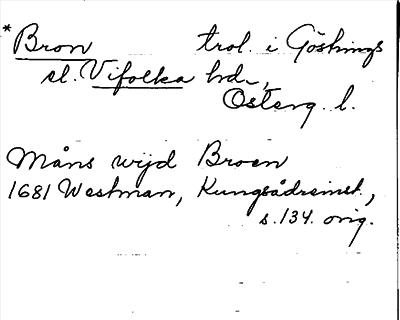 *Bron trol. i Göstrings
el. Vifolka hd.,
Österg. l.
Måns wijd Broen
1681 Westman, Kungsådreinst.,
s. 134. orig.